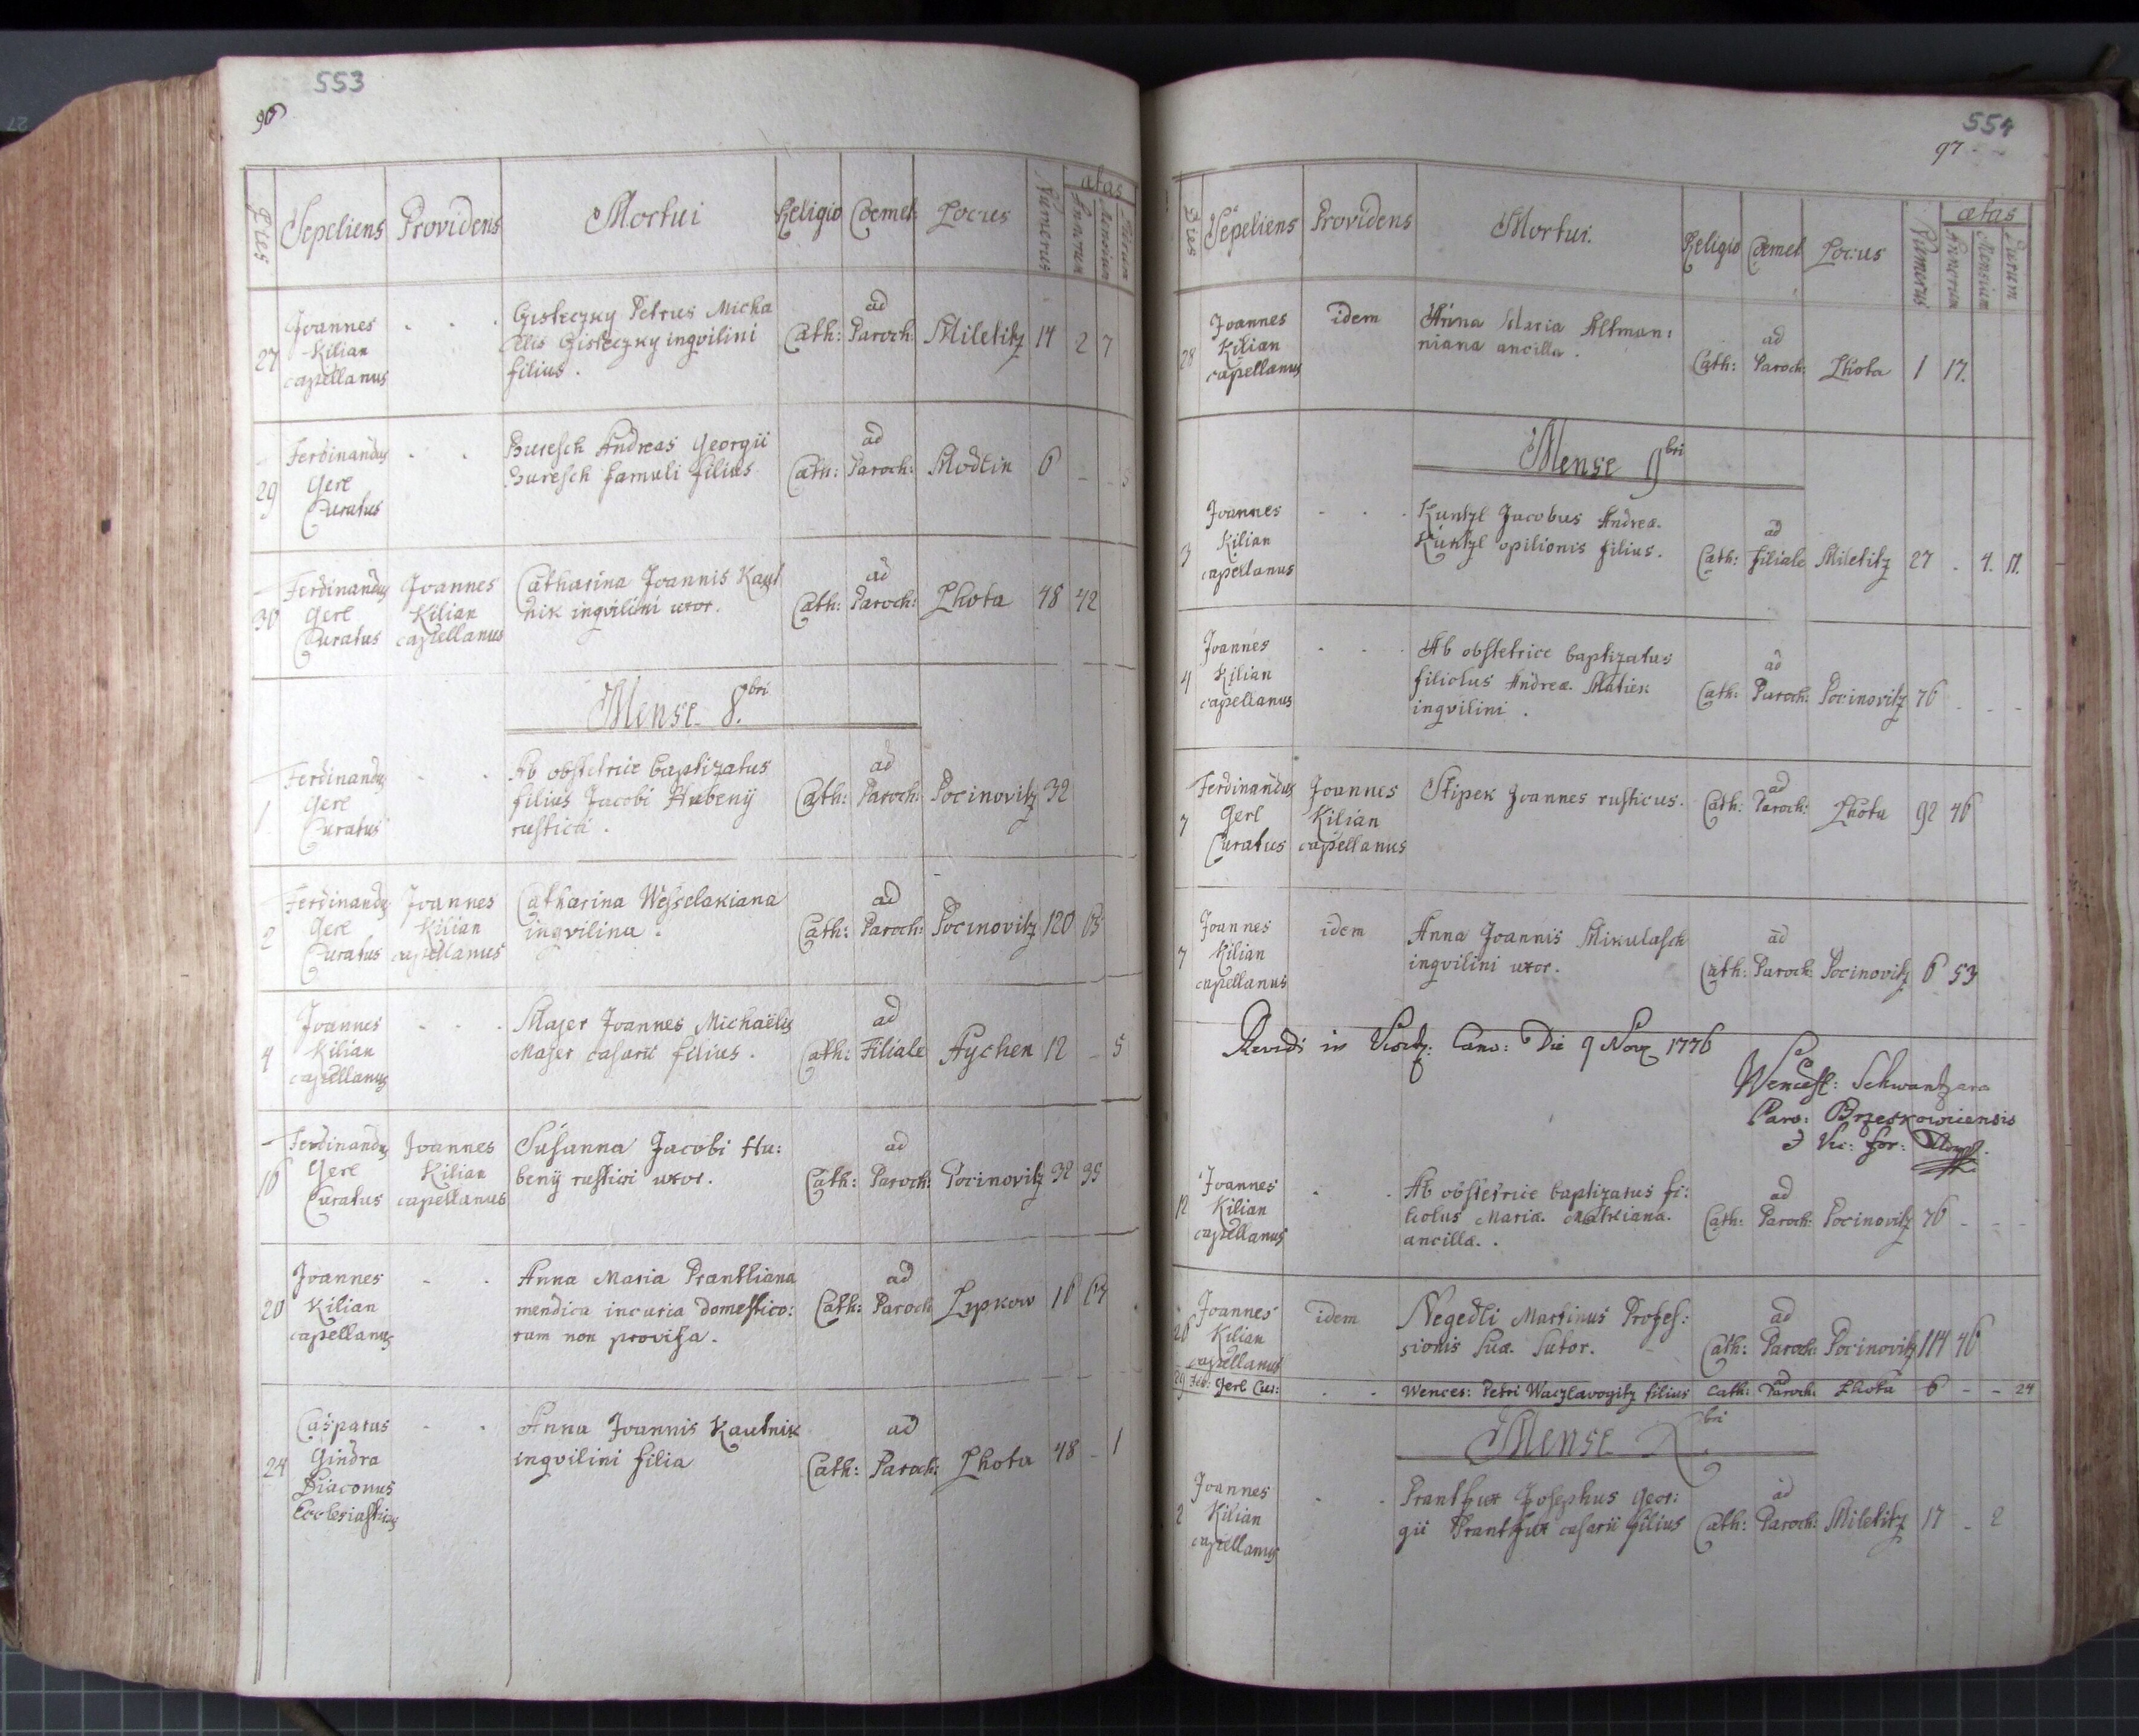 553
96
Dies Sepeliens Providens Mortui Religio Coemet: Locus Numerus ætas
Annorum Mensium Dierum
27 Joannes Kilian capellanus - - - Gisteczky Petrus Micha
aelis Gisteczky ingvilini
filius. Cath: ad Paroch: Miletitz 14 2 7
29 Ferdinandus Gerl Curatus - - Buresch Andreas Georgii
Buresch famuli filius Cath: ad Paroch: Modlin 6 - - 5
30 Ferdinandus Gerl Curatus Joannes Kilian capellanus Catharina Joannis Kaut
nik ingvilini uxor. Cath: ad Paroch: Lhota 48 42
Mense 8.bri
1. Ferdinandus Gerl Curatus - - Ab obstetrice baptizatus
filius Jacobi Hubenÿ
rustici. Cath: ad Paroch: Pocinovitz 32
2 Ferdinandus Gerl Curatus Joannes Kilian capellanus Catharina Wesselakiana
ingvilina. Cath: ad Paroch: Pocinovitz 120
4 Joannes Kilian capellanus - - - Majer Joannes Michaëlis
Majer casarii filius. Cath: ad Filiale Aychen 12 - 5
16 Ferdinandus Gerl Curatus Joannes Kilian capellanus Susanna Jacobi Hu:
benÿ rustici uxor. Cath: ad Paroch: Pocinovitz 32 35
20 Joannes Kilian capellanus - - Anna Maria Prantliana
mendica incuria domestico:
rum non provisa. Cath: ad Paroch Lypkow 16
24 Casparus Gindra Diaconus Ecclesiasticus - - Anna Joannis Kautnik
ingvilini filia Cath: ad Paroch: Lhota 48 - 1
554
97
Dies Sepeliens Providens Mortui. Religio Coemet Locus Numerus ætas
Annorum Mensium Dierum
28 Joannes Kilian capellanus idem Anna Maria Altman:
niana ancilla. Cath: ad Paroch: Lhota 1 17.
Mense 9bri
3 Joannes Kilian capellanus - - - Kuntzl Jacobus Andreæ
Kuntzl opilionis filius. Cath: ad filiale Miletitz 27 . 4. 11.
4 Joannes Kilian capellanus - - - Ab obstetrice baptizatus
filiolus Andreæ Matiek
ingvilini. Cath: ad Paroch: Pocinovitz 76 - - -
7 Ferdinandus Gerl Curatus Joannes Kilian capellanus Stipek Joannes rusticus. Cath: ad Paroch: Lhota 92 46
7 Joannes Kilian capellanus idem Anna Joannis Mikulasch
ingvilini uxor. Cath: ad Paroch: Pocinovitz 6 53
Revidi in Visit: Cano: Die 9 Nov 1776
Wencesl: Schwantzara
Paro: Brzeskowicensis
Vic: for:
12 Joannes Kilian capellanus - - Ab obstetrice baptizatus fi:
liolus Mariæ Matkiana
ancillæ. Cath: ad Paroch: Pocinovitz 76 - - -
26 Joannes Kilian capellanus idem Negedli Martinus Profes:
sionis suæ Sutor. Cath: ad Paroch: Pocinovitz 114 46
29 Fer: Gerl Cur: - - Wences: Petri Waczlavogitz filius Cath: ad Paroch: Lhota 6 - - 24
Mense Xbri
2 Joannes Kilian capellanus - - Prantfux Josephus Geor:
gii Prantfux casarii filius Cath: ad Paroch: Miletitz 17 - 2